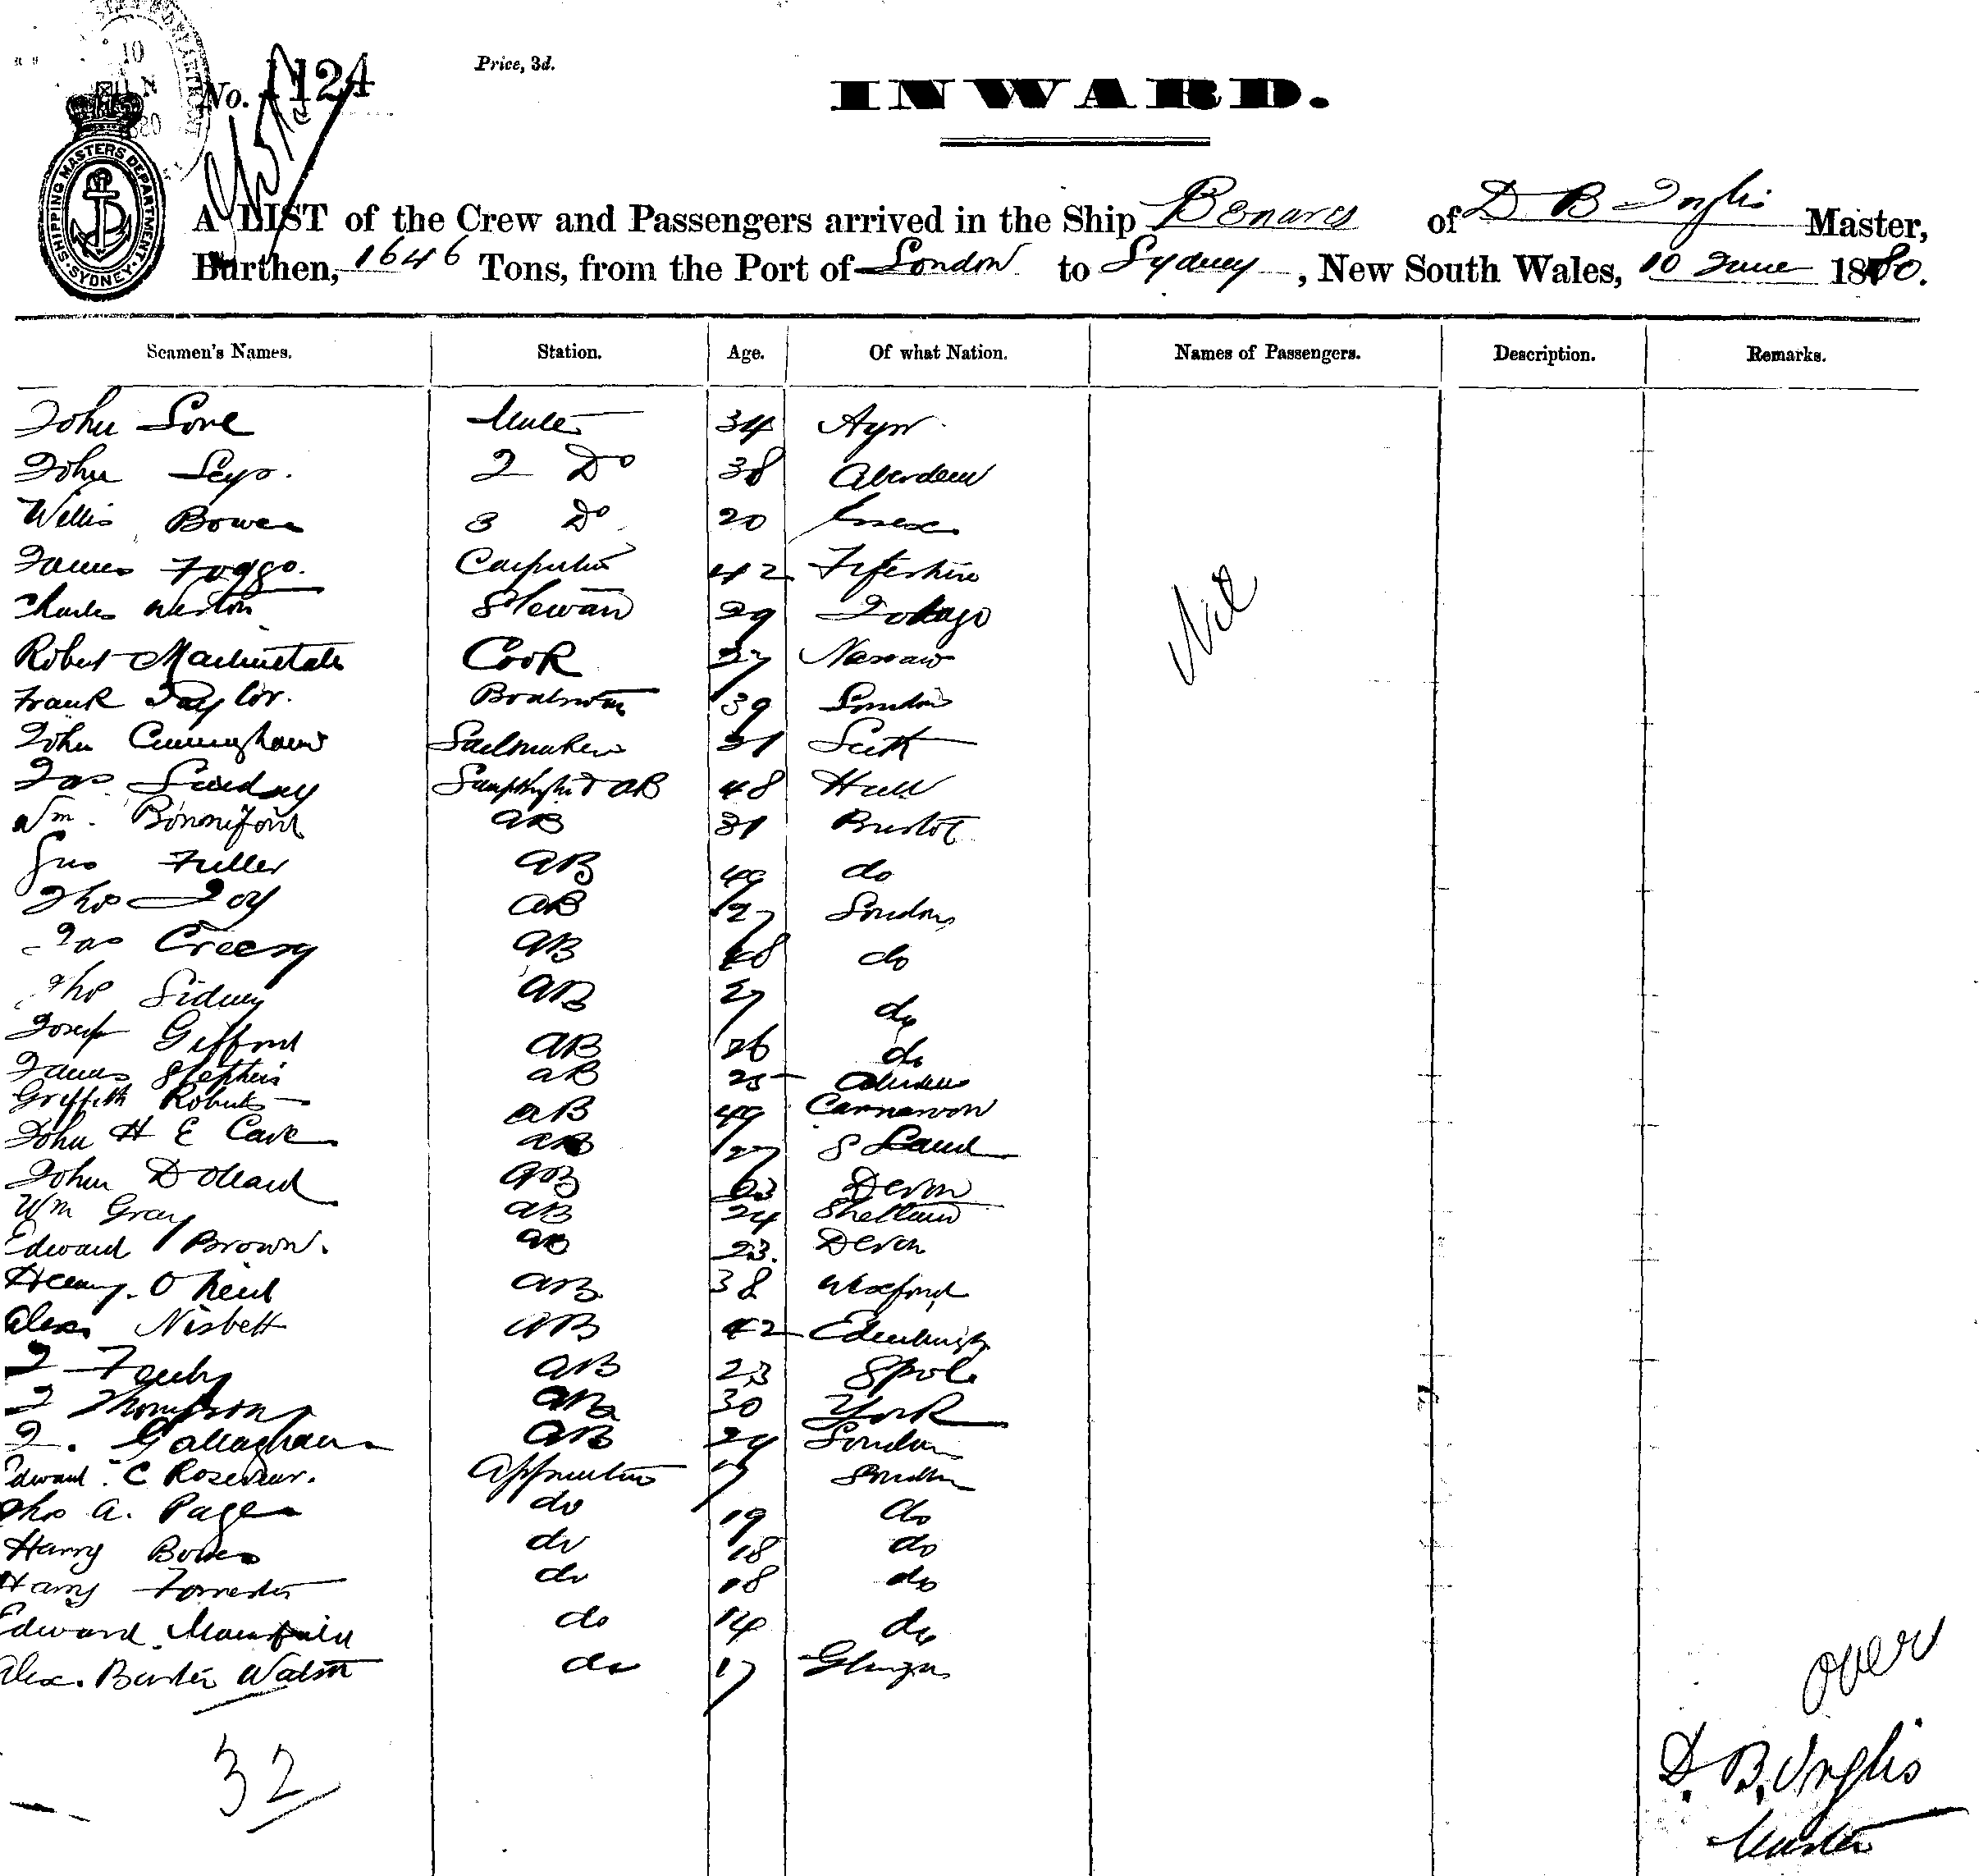 No. 1124
Price, 3d.
INWARD.
SHIPPING MASTERS DEPARTMENT. SYDNEY.
A LIST of the Crew and Passengers arrived in the Ship Benares of D B Inglis Master,
Burthen, 1646 Tons, from the Port of London to Sydney, New South Wales, 10 June 1880.
Seamen's Names. Station. Age. Of what Nation. Names of Passengers. Description. Remarks.
John Love Mate 34 Ayr
John Seys. 2 Do 38 Aberdeen
Willis Bowen 3 Do 20 Essex
James Foggo. Carpenter 42 Fifeshire
Charles Weston Steward 29 Tobago
Robert Cook 27 Nassau
Frank Taylor. Boatswain 39 London
John Cunningham Sailmaker 31 Leith
Jas Lindsay Lamptrimmer & AB 48 Hull
Wm. Bonnifont AB 31 Bristol
Gus Fuller AB 49 do
Thos Joy AB 27 London
Jas Creesy AB 48 do
Thos Sidney AB 27 do
Joseph Gifford AB 26 do
James Stephens AB 25 Aberdeen
Griffith Roberts AB 49 Carnarvon
John H E Cave AB 27 S Land
John Dollard AB 23 Devon
Wm Gray AB 24 Shetland
Edward Brown. AB 23. Devon
Henry O Neil AB 38 Wexford
Alex Nisbett AB 42 Edinburgh
J AB 23
J Thompson AB 30 York
J. Gallaghan AB 24 London
Edward C Rosevear. Apprentice 17 London
Thos A. Page do 19 do
Harry Bowes do 18 do
Harry Forrester do 18 do
Edward Mansfield do 14 do
Alex. Baxter Watson do 17 Glasgow
Nil
32
over
D. B. Inglis
Master